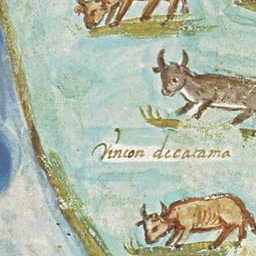 Rincon de catama